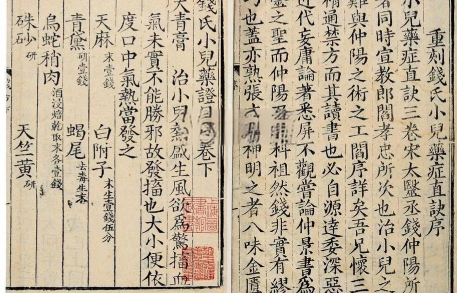 重刻錢氏小兒藥症直訣序
小兒藥症直訣三卷宋太醫丞錢仲陽所
者同時宣教郎閻孝忠所次也治小兒之
難與仲陽之術之工閻序詳矣吾兄懷三
精通禁方而其讀書也必自源達委深惡
近代妄庸論著悉屏不觀嘗論仲景書為
靈之聖而仲陽 科祖然錢非實有繆
巧也蓋亦熟張氏 神明之者八味金匱
錢氏小兒藥證直訣卷下
大青膏 治小兒熱盛生風欲為驚搐血
氣未實不能勝邪故發搐也大小便依
度口中氣熱當發之
天麻末壹錢 白附子末生壹錢伍分
青黛研壹錢 蝎尾去毒生末
烏蛇稍肉酒浸焙乾取末各壹錢
硃砂研 天竺黃研